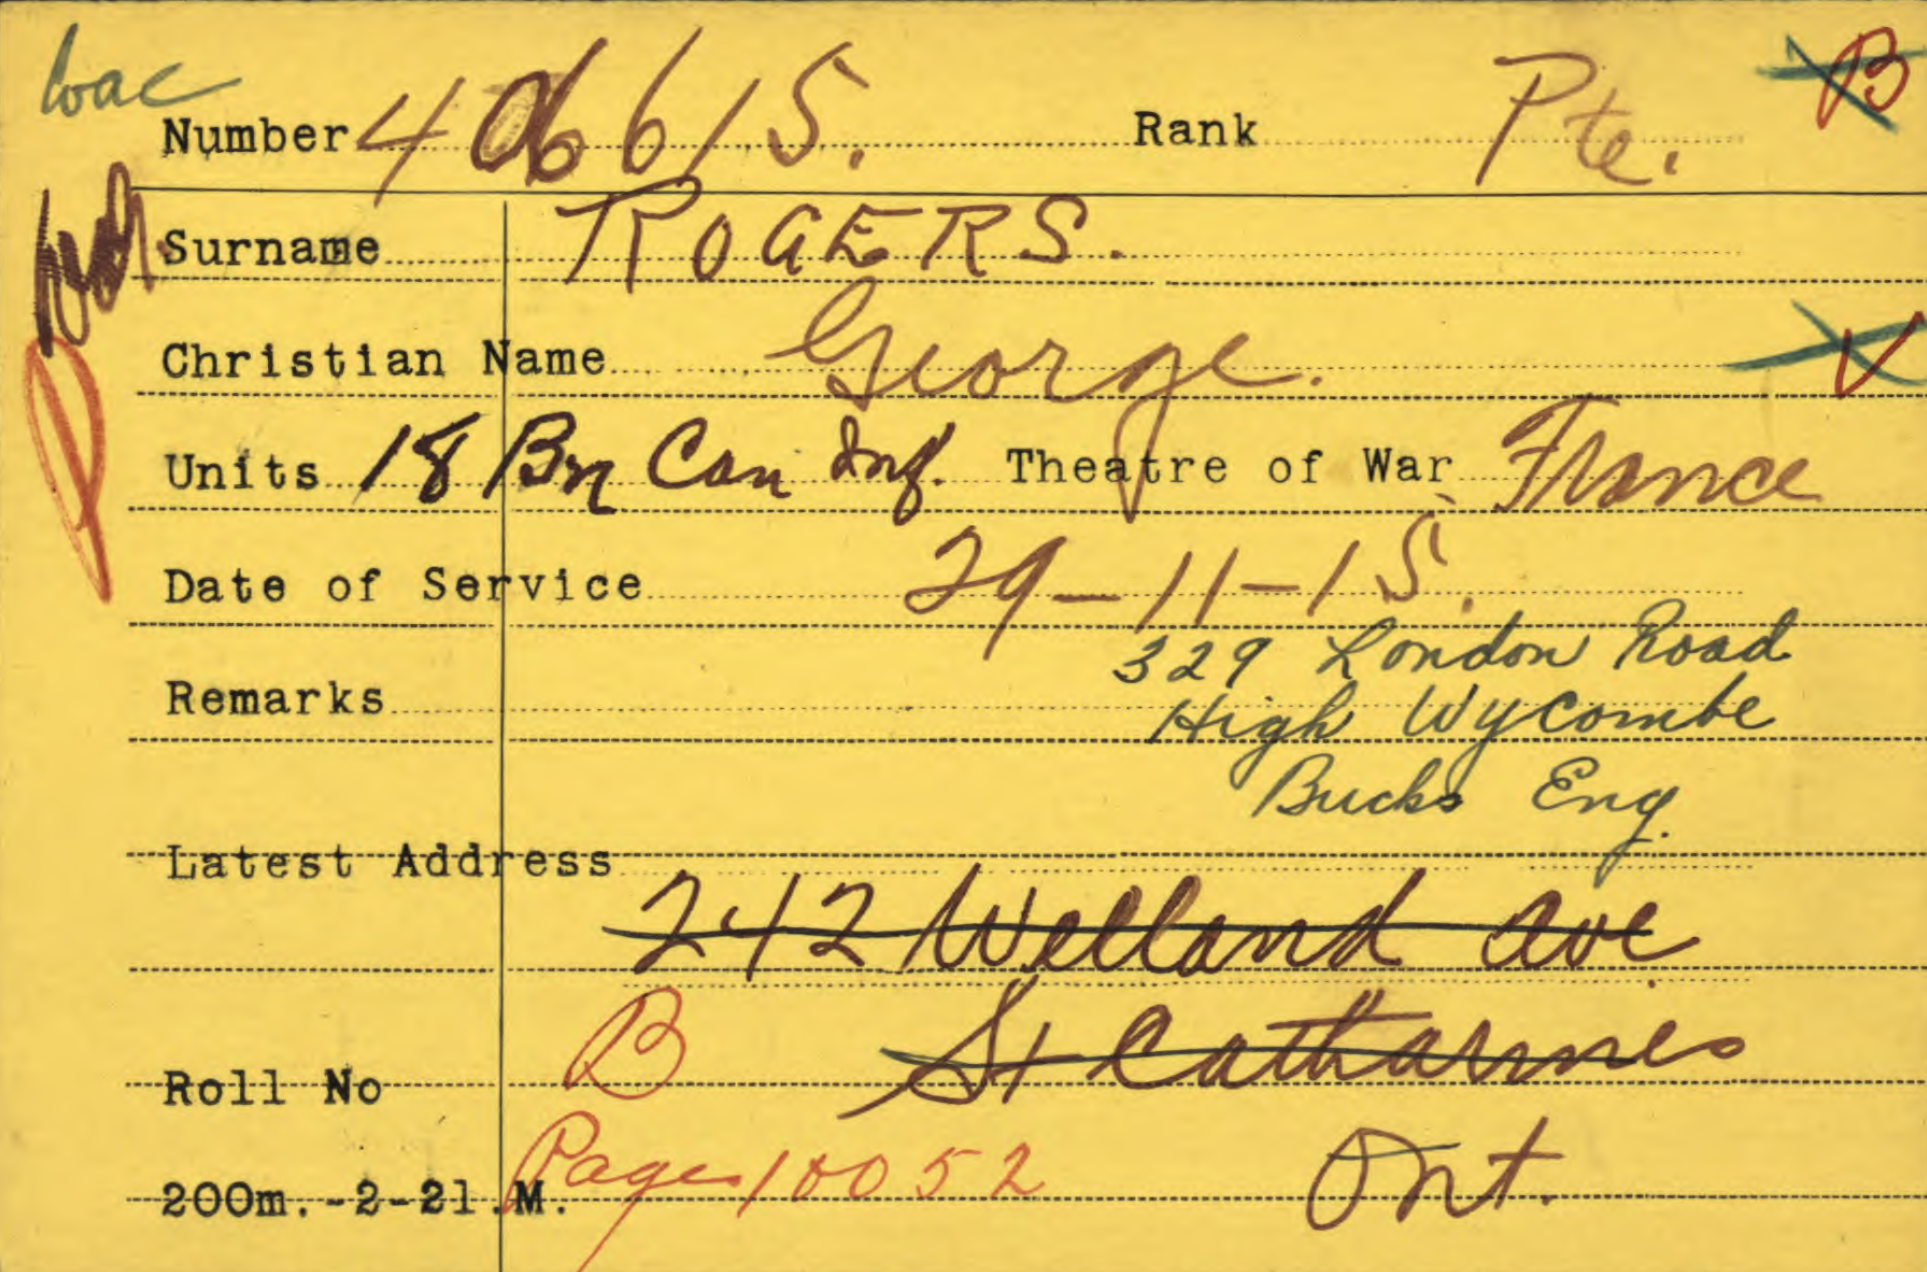 wac
Number 406615. Rank Pte. B
Surname ROGERS.
Christian Name George.
Units 18 Bn Can Inf. Theatre of War France
Date of Service 29-11-15.
329 London Road
Remarks High Wycombe
Bucks Eng.
Latest Address
242 Welland Ave
St Catharines
Roll No B
Ont.
200m.-2-21.M. Page 10052